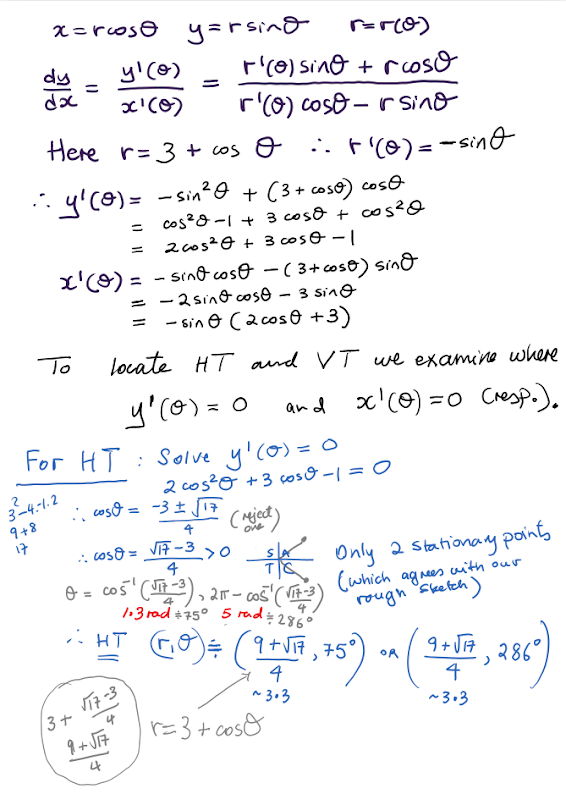 x = r cosθ   y = r sinθ   r = r(θ)
dy/dx = y'(θ)/x'(θ) = (r'(θ) sinθ + r cosθ)/(r'(θ) cosθ − r sinθ)
Here r = 3 + cos θ ∴ r'(θ) = −sinθ
∴ y'(θ) = −sin²θ + (3 + cosθ) cosθ
= cos²θ − 1 + 3 cosθ + cos²θ
= 2cos²θ + 3cosθ − 1
x'(θ) = −sinθ cosθ − (3 + cosθ) sinθ
= −2sinθ cosθ − 3 sinθ
= −sinθ (2cosθ + 3)
To locate HT and VT we examine where
y'(θ) = 0 and x'(θ) = 0 (resp.).
For HT : Solve y'(θ) = 0
2cos²θ + 3cosθ − 1 = 0
3² − 4·−1·2
9 + 8
17
∴ cosθ = (−3 ± √17)/4 (reject one)
∴ cosθ = (√17 − 3)/4 > 0
S A
T C
Only 2 stationary points
(which agrees with our
rough sketch)
θ = cos⁻¹((√17−3)/4), 2π − cos⁻¹((√17−3)/4)
1.3 rad ≑ 75° 5 rad ≑ 286°
∴ HT (r,θ) ≑ ((9+√17)/4, 75°) OR ((9+√17)/4, 286°)
~3.3 ~3.3
3 + (√17−3)/4
(9+√17)/4
r = 3 + cosθ